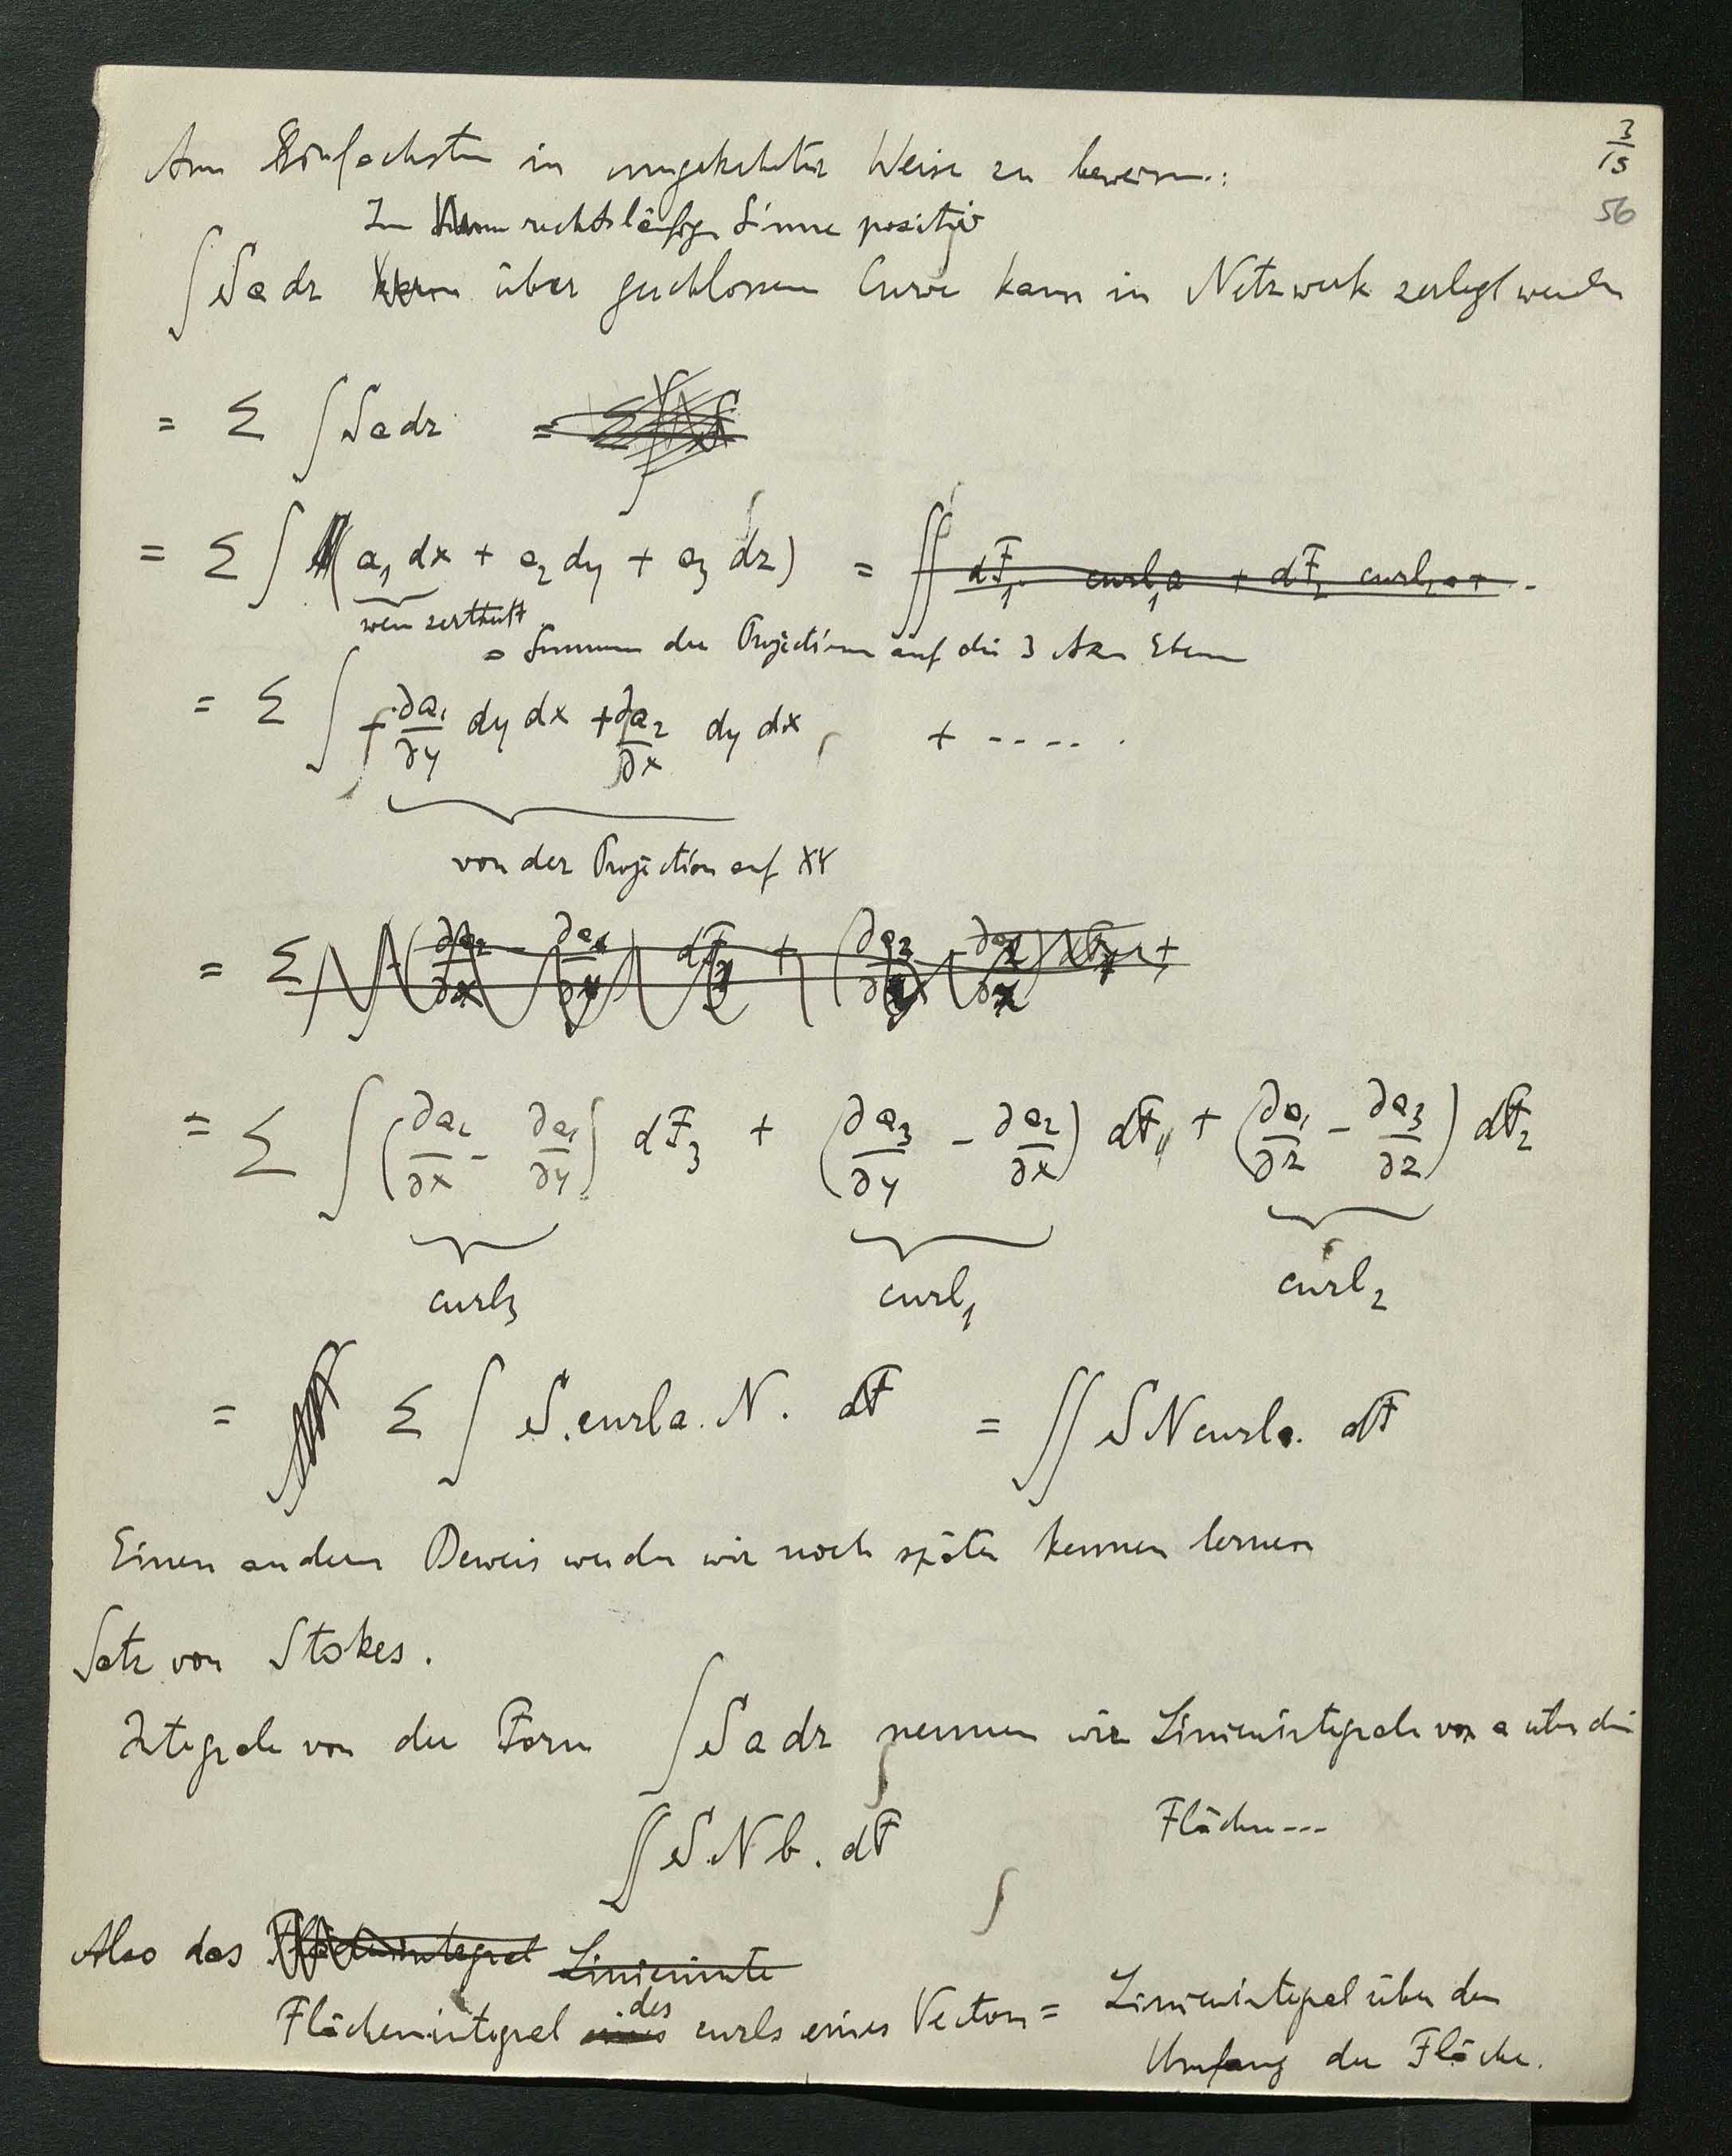 3/15
56
Am Einfachsten in umgekehrter Weise zu beweisen:
Im rechtsläufigen Sinne positiv
∫ S a dr über geschlossene Curve kann in Netzwerk zerlegt werden
= Σ ∫ S a dr =
= Σ ∫ (a₁ dx + a₂ dy + a₃ dz) = ∬ dF₁ curl₁a + dF₂ curl₂a + ..
= Summe der Projectionen auf die 3 Axen Ebenen
= Σ ∫ - ∂a₁/∂y dy dx + ∂a₂/∂x dy dx + .....
von der Projection auf XY
= Σ
= Σ ∫ (∂a₂/∂x - ∂a₁/∂y) dF₃ + (∂a₃/∂y - ∂a₂/∂x) dF₁ + (∂a₁/∂z - ∂a₃/∂z) dF₂
curl₃ curl₁ curl₂
= Σ ∫ S. curl a. N. dF = ∬ S N curl a. dF
Einen andern Beweis werden wir noch später kennen lernen
Satz von Stokes.
Integrale von der Form ∫ S a dr nennen wir Linienintegrale von a über die
∬ S. N b. dF Flächen---
Also das Flächenintegral Linieninte
Flächenintegral eines des curls eines Vectors = Linienintegral über den
Umfang der Fläche.